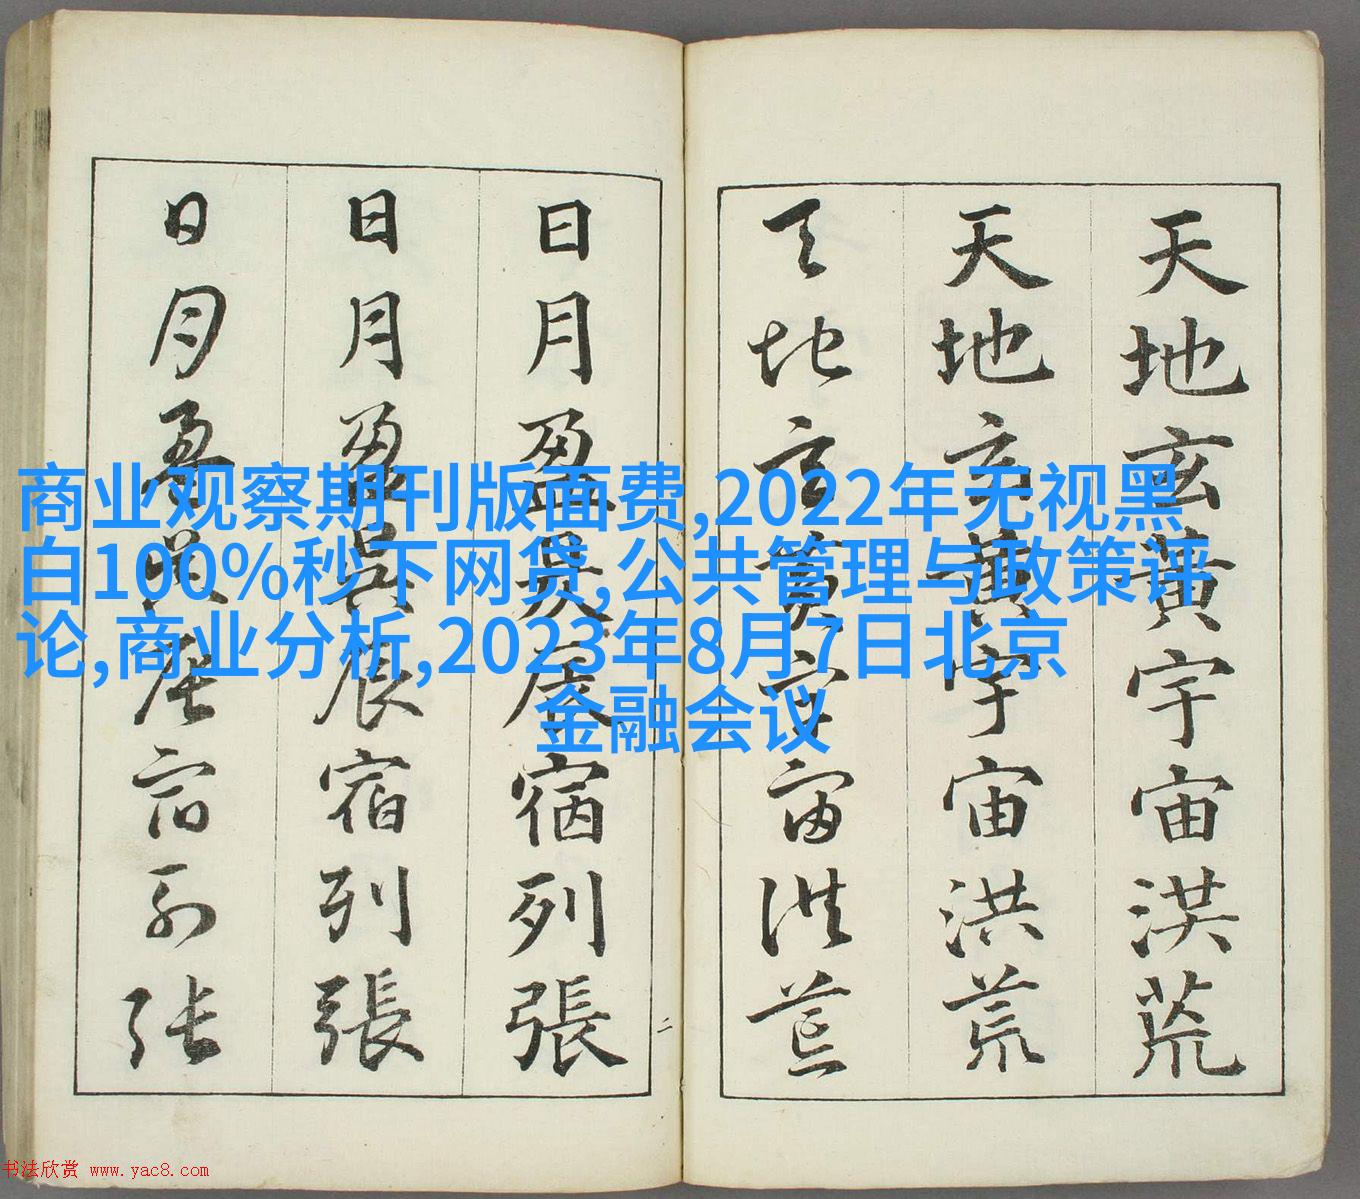 商业观察期刊版面费,2022年无视黑
白100%秒下网贷,公共管理与政策评
论,商业分析,2023年8月7日北京
金融会议
天地玄黄宇宙洪荒
天地玄黄宇宙洪荒
天地玄黄宇宙洪荒
日月盈昃辰宿列張
日月盈昃辰宿列張
日月盈昃辰宿列张
二
书法欣赏 www.yac8.com